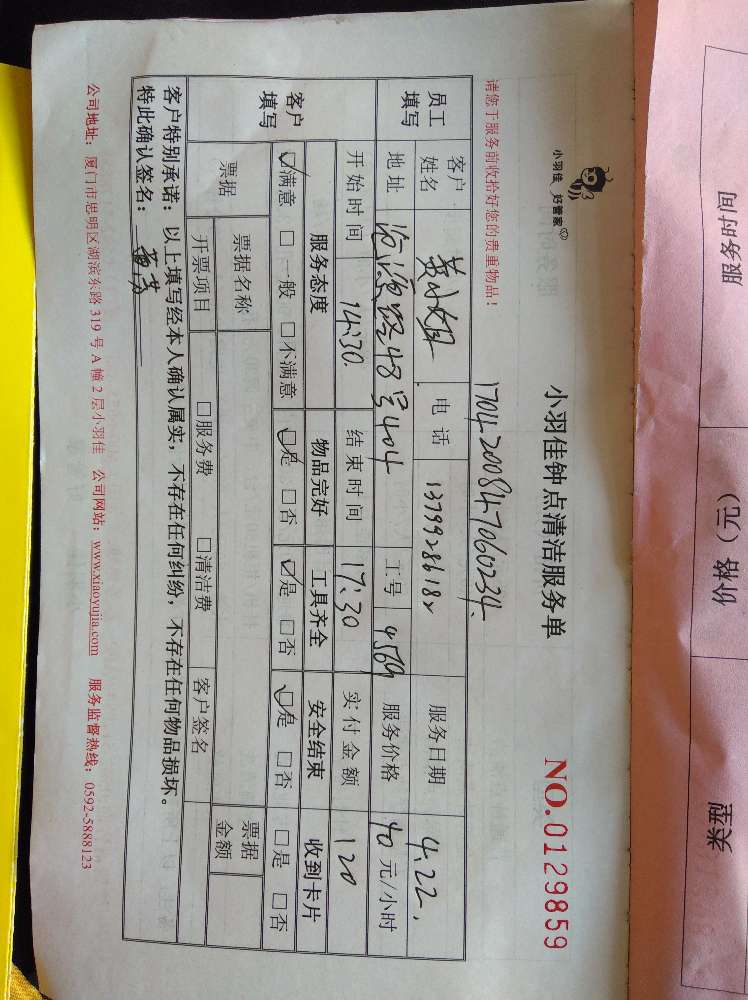 小羽佳 好管家
小羽佳钟点清洁服务单
NO.0129859
请您于服务前收拾好您的贵重物品！
1704200847060234.
员工填写 客户姓名 黄小姐 电话 服务日期 4.22.
地址 号404 工号 服务价格 40 元/小时
客户填写 开始时间 14:30. 结束时间 17:30 实付金额 120
服务态度 物品完好 工具齐全 安全结束 收到卡片
☑满意 □一般 □不满意 ☑是 □否 ☑是 □否 ☑是 □否 □是 □否
票据 票据名称 票据金额
开票项目 □服务费 □清洁费 客户签名
客户特别承诺：以上填写经本人确认属实，不存在任何纠纷，不存在任何物品损坏。
特此确认签名：
公司地址：厦门市思明区湖滨东路 319 号 A 幢 2 层小羽佳 公司网站：www.xiaoyujia.com 服务监督热线：0592-5888123
服务时间
价格（元）
类型